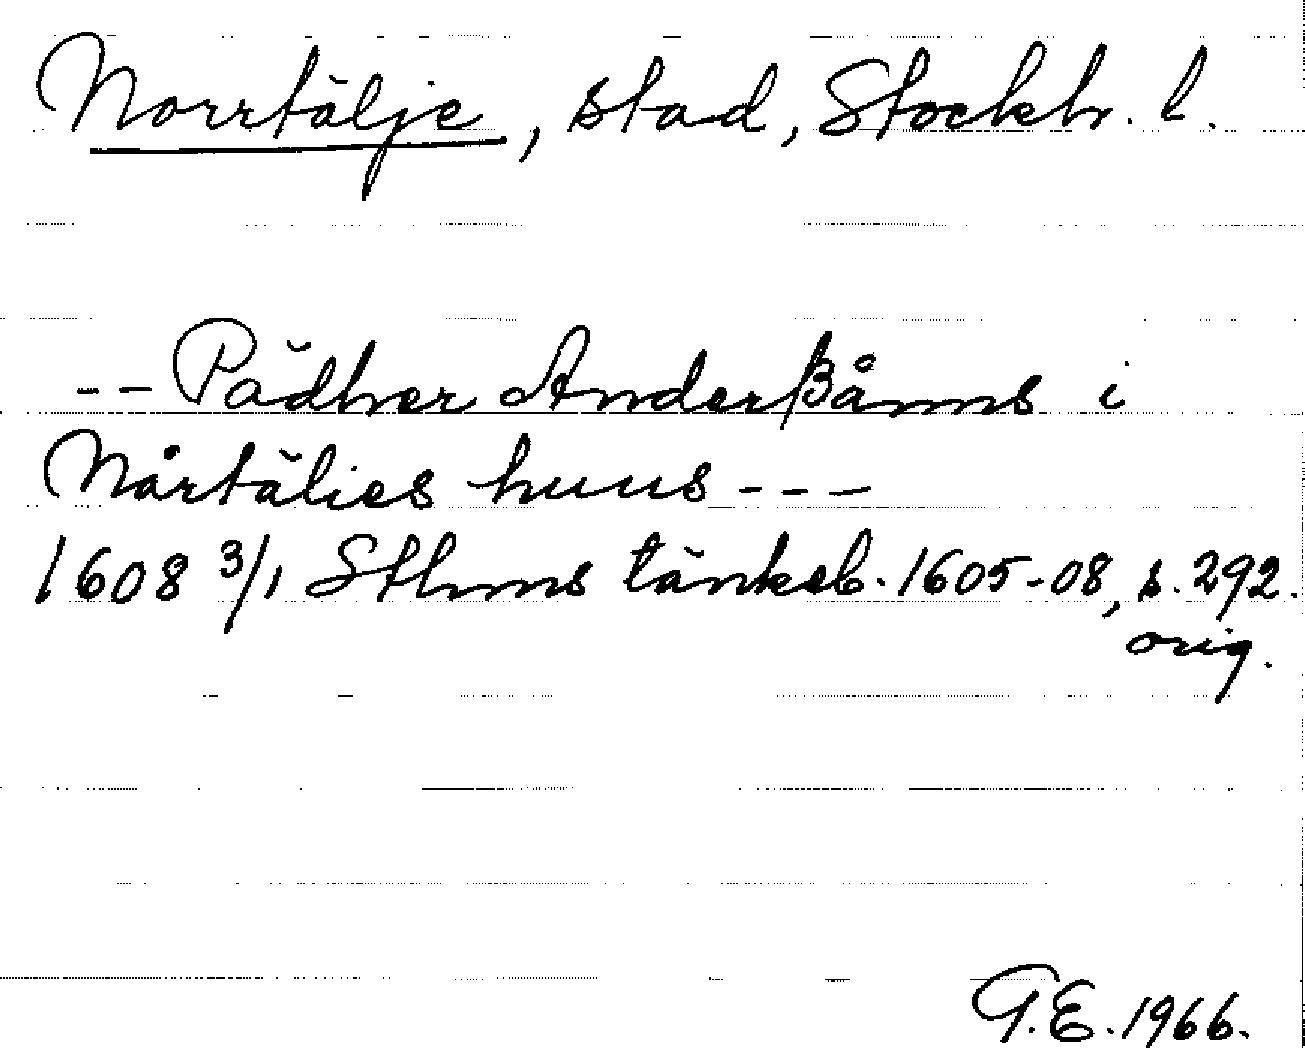 Norrtälje, stad, Stockh. l.
-- Pädher Anderßånns i
Nårtälies huus ---
1608 3/1 Sthms tänkeb. 1605-08, s. 292.
orig.
G.E. 1966.